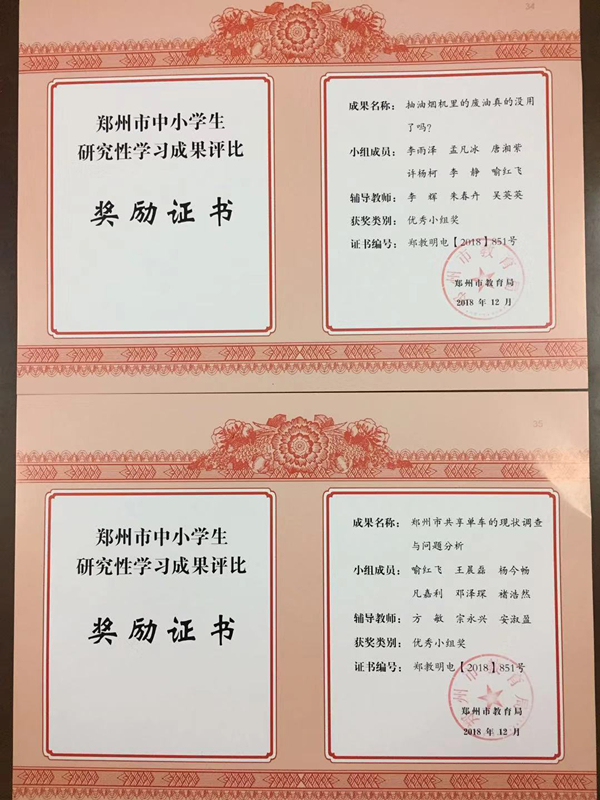 34
郑州市中小学生
研究性学习成果评比
奖励证书
成果名称： 抽油烟机里的废油真的没用
了吗？
小组成员： 李雨泽 孟凡冰 唐湘紫
许杨柯 李静 喻红飞
辅导教师： 李辉 朱春卉 吴英英
获奖类别： 优秀小组奖
证书编号： 郑教明电【2018】851号
郑州市教育局
郑州市教育局
2018 年 12 月
35
郑州市中小学生
研究性学习成果评比
奖励证书
成果名称： 郑州市共享单车的现状调查
与问题分析
小组成员： 喻红飞 王晨磊 杨今畅
凡嘉利 邓泽琛 褚浩然
辅导教师： 方敏 宗永兴 安淑盈
获奖类别： 优秀小组奖
证书编号： 郑教明电【2018】851号
郑州市教育局
郑州市教育局
2018 年 12 月